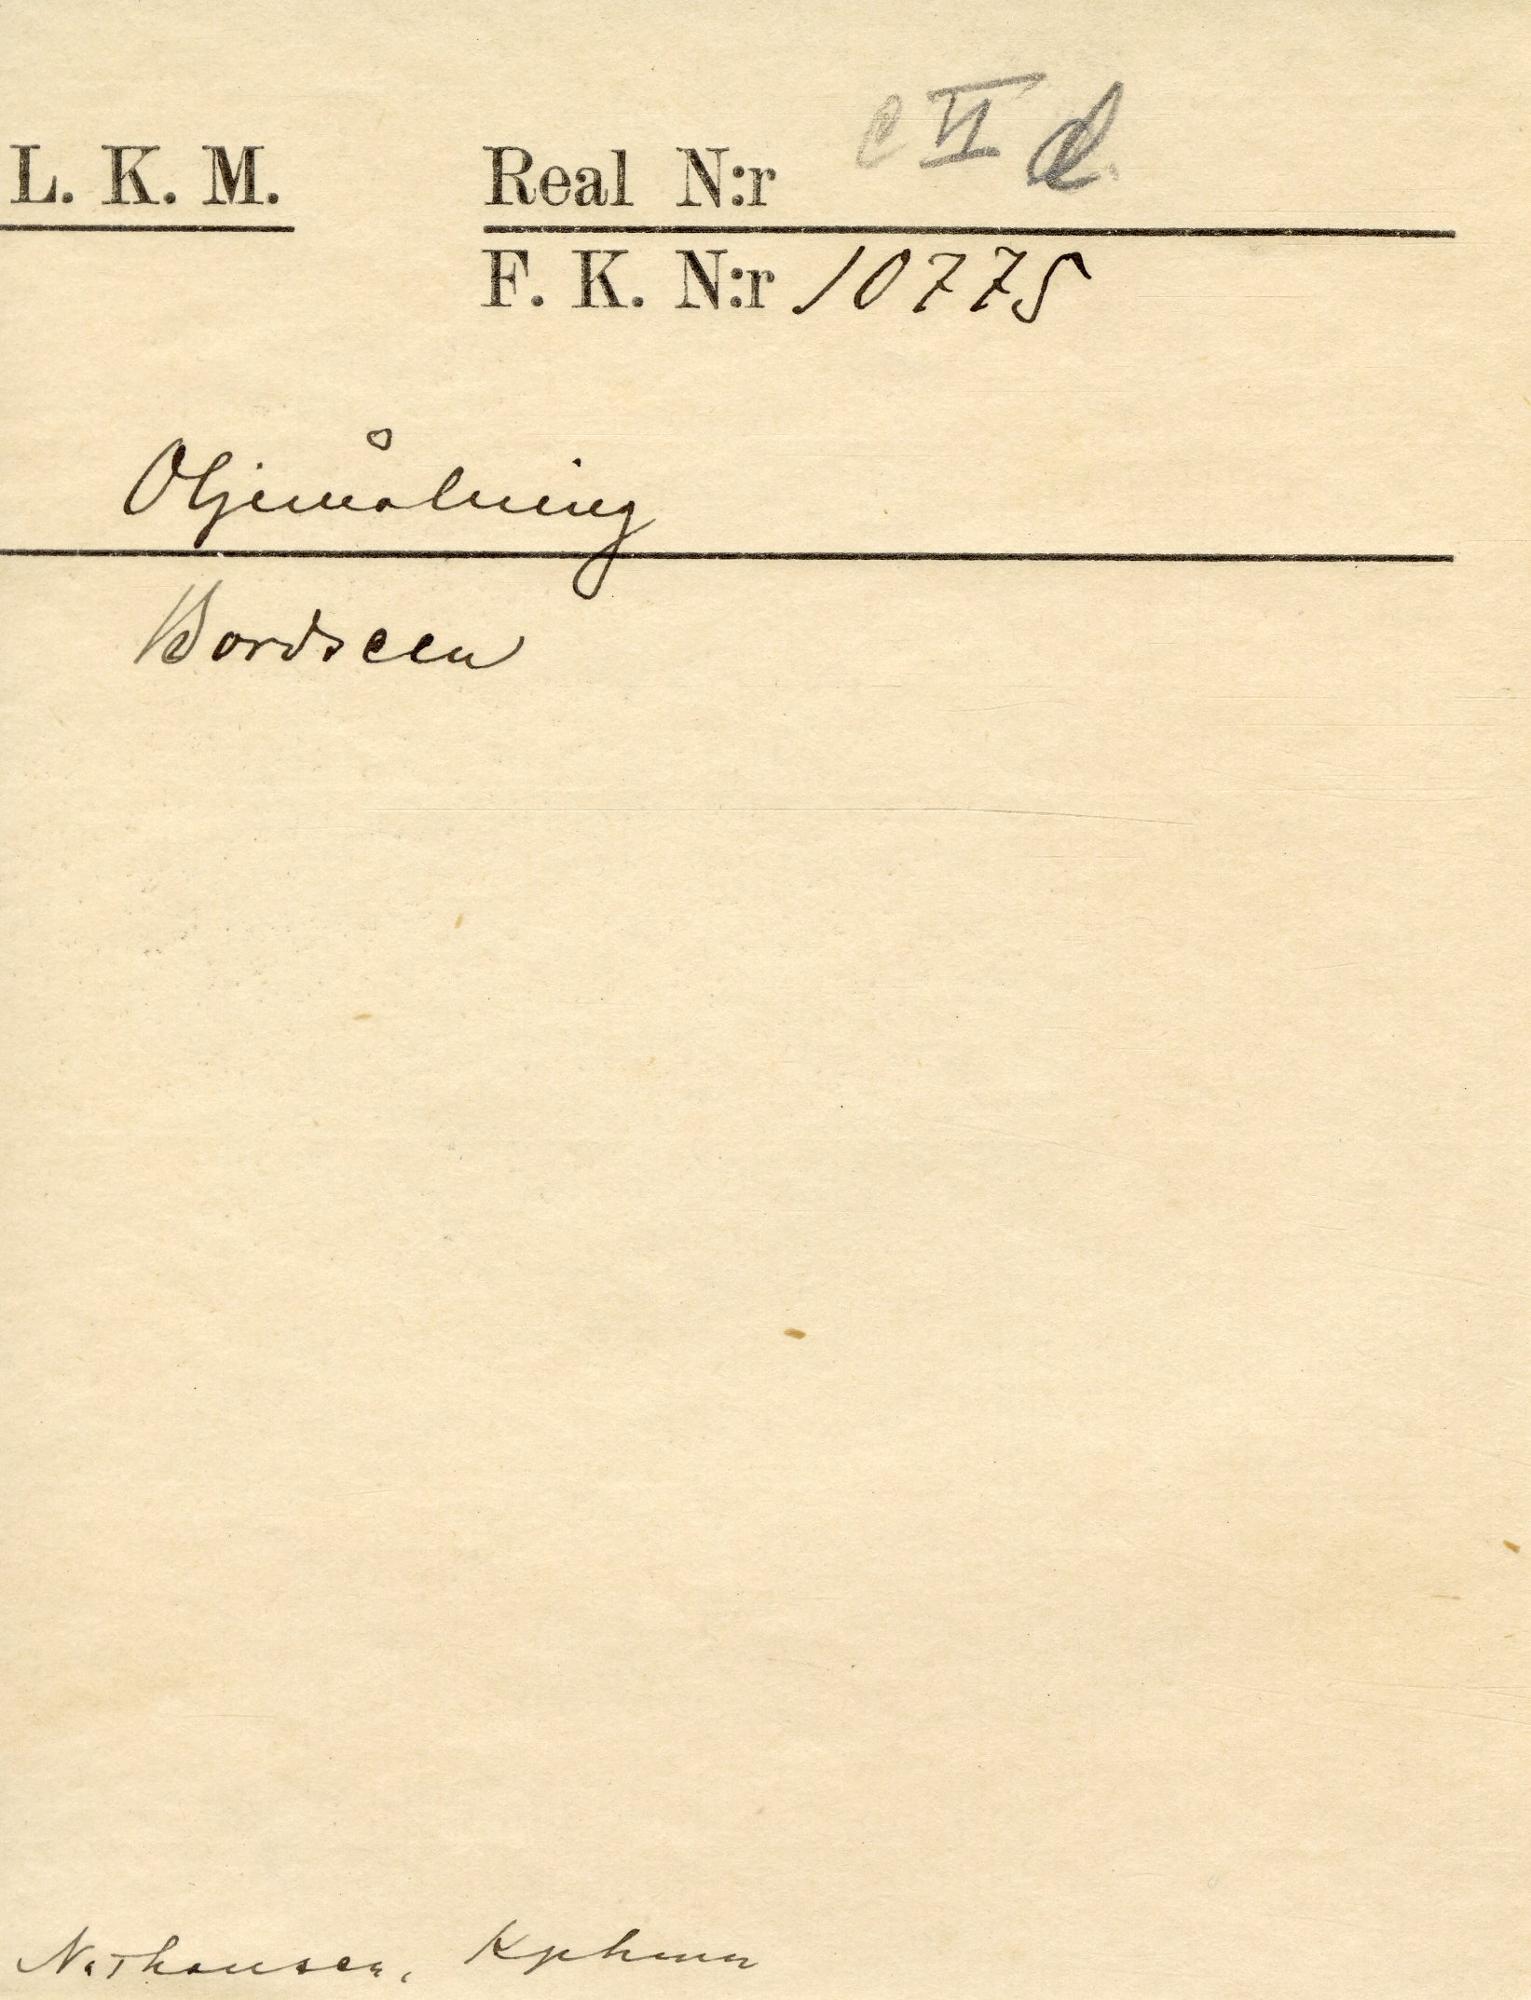 L. K. M.
Real N:r c VI d.
F. K. N:r 10775
Oljemålning
Bordscen
Nathansen, Kphmn